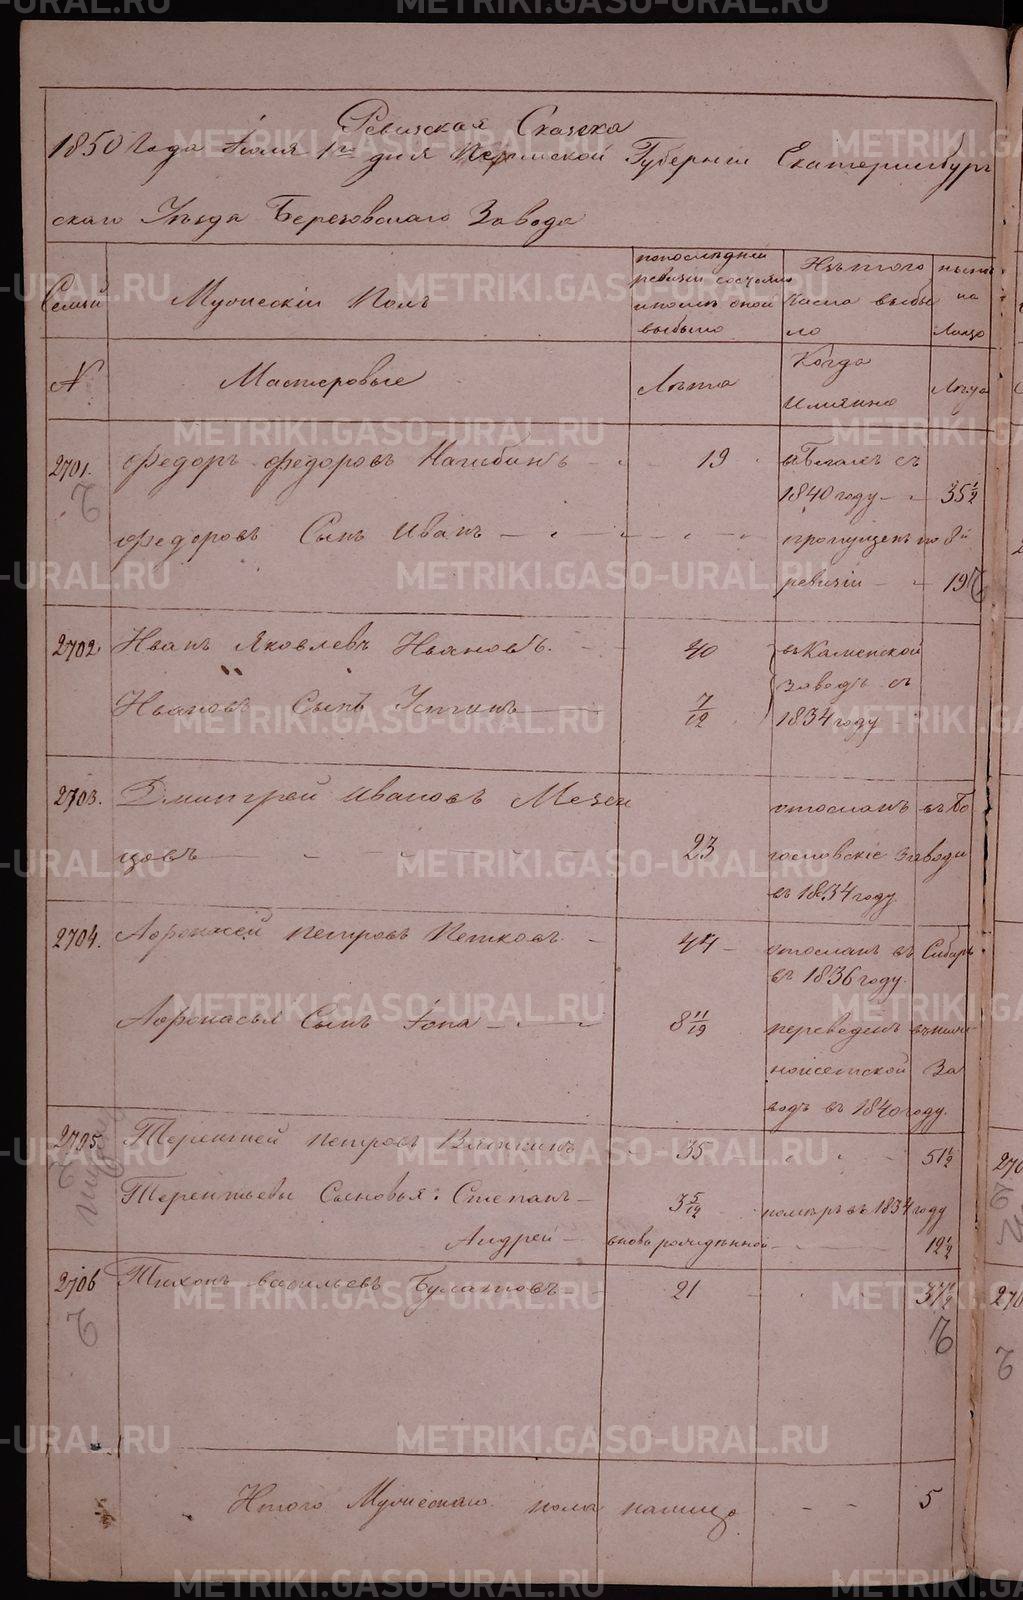 Ревизская Сказка
1850 Года Июля 1го дня Пермской Губернии Екатеринбург
скаго Уезда Березовскаго Завода
Семьи
Мужескiй Полъ
попоследней
ревизiи состояло
ипосле оной
выбыло
Изъ того
числа выбы
ло
ныне
на
лицо
N
Мастеровые
Лета
Когда
Имянно
Лета
2701.
Федоръ Федоровъ Нагибинъ
19
вбегахъ съ
1840 году
35 1/2
Федоровъ Сынъ Иванъ
пропущенъ по 8й
ревизiи
19
2702
Иванъ Яковлевъ Ивановъ
40
въ Каменской
заводъ съ
1834 году
Ивановъ Сынъ Устинъ
7/12
2703.
Дмитрей Ивановъ Мезен
цовъ
23
отосланъ въ Бо
гословскiе заводы
въ 1834 году
2704.
Афонасей Петровъ Петковъ
44
отосланъ въ Сибирь
въ 1836 году
Афонасья Сынъ Iона
8 11/12
переведенъ въ ниж
ноисетской За
водъ въ 1840 году.
2705.
Терентей Петровъ Вяткинъ
35
51 1/2
Терентьевы Сыновья: Степанъ
3 5/12
померъ въ 1834 году
Андрей
вновь рожденной
12 1/2
2706
Тихонъ Васильевъ Булатовъ
21
37 1/2
Итого Мужескаго пола налицо
5
METRIKI.GASO-URAL.RU